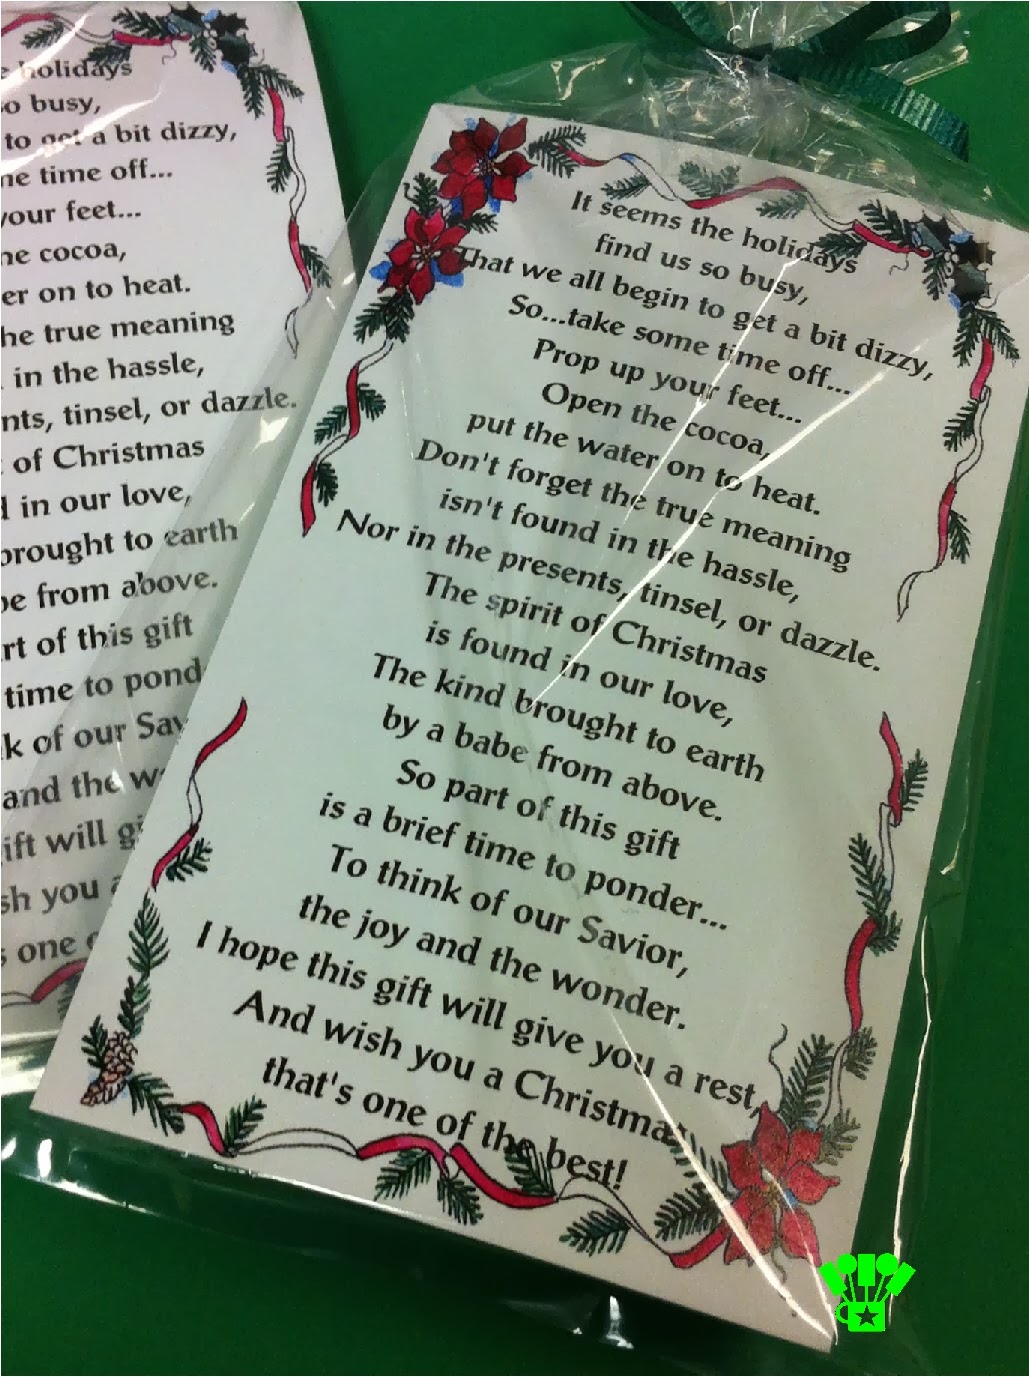 holidays
so busy,
to get a bit dizzy,
time off...
your feet...
cocoa,
on to heat.
the true meaning
in the hassle,
tinsel, or dazzle.
of Christmas
in our love,
brought to earth
from above.
of this gift
time to pond
of our Sav
and the w
will gi
you
one
It seems the holidays
find us so busy,
That we all begin to get a bit dizzy,
So...take some time off...
Prop up your feet...
Open the cocoa,
put the water on to heat.
Don't forget the true meaning
isn't found in the hassle,
Nor in the presents, tinsel, or dazzle.
The spirit of Christmas
is found in our love,
The kind brought to earth
by a babe from above.
So part of this gift
is a brief time to ponder...
To think of our Savior,
the joy and the wonder.
I hope this gift will give you a rest,
And wish you a Christmas
that's one of the best!